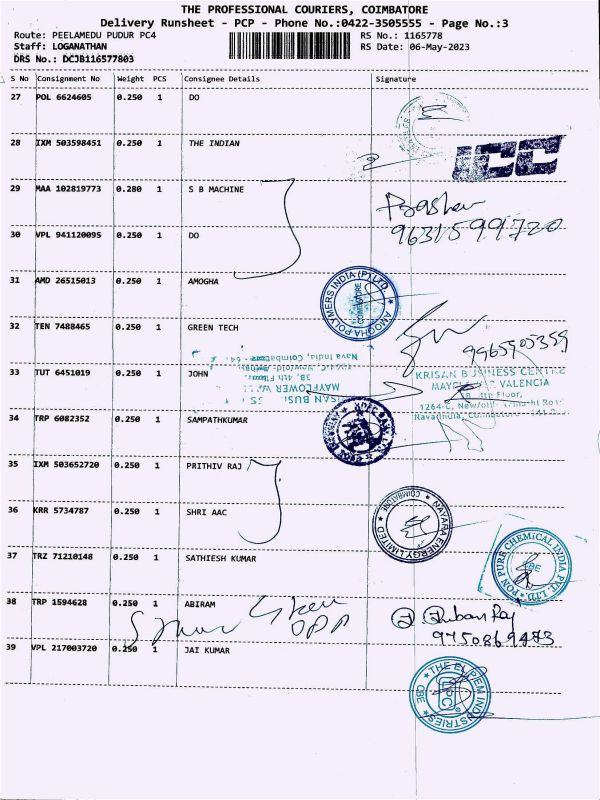 THE PROFESSIONAL COURIERS, COIMBATORE
Delivery Runsheet - PCP - Phone No.:0422-3505555 - Page No.:3
Route: PEELAMEDU PUDUR PC4 RS No.: 1165778
Staff: LOGANATHAN RS Date: 06-May-2023
DRS No.: DCJB116577803
S No Consignment No Weight PCS Consignee Details Signature
27 POL 6624605 0.250 1 DO
28 IXM 503598451 0.250 1 THE INDIAN
ICC
29 MAA 102819773 0.280 1 S B MACHINE
9631599720
30 VPL 941120095 0.250 1 DO
31 AMD 26515013 0.250 1 AMOGHA
AMOGHA POLYMERS INDIA (P) LTD
COIMBATORE
32 TEN 7488465 0.250 1 GREEN TECH
9965905359
33 TUT 6451019 0.250 1 JOHN
KRISAN BUSINESS CENTRE
VALENCIA
4th Floor,
1264-C,
34 TRP 6082352 0.250 1 SAMPATHKUMAR
35 IXM 503652720 0.250 1 PRITHIV RAJ
36 KRR 5734787 0.250 1 SHRI AAC
NAYARA ENERGY LIMITED
COIMBATORE
37 TRZ 71210148 0.250 1 SATHIESH KUMAR
PON PURE CHEMICAL INDIA PVT. LTD.
CBE
38 TRP 1594628 0.250 1 ABIRAM
9750869473
39 VPL 217003720 0.250 1 JAI KUMAR
INDUSTRIES
CBE